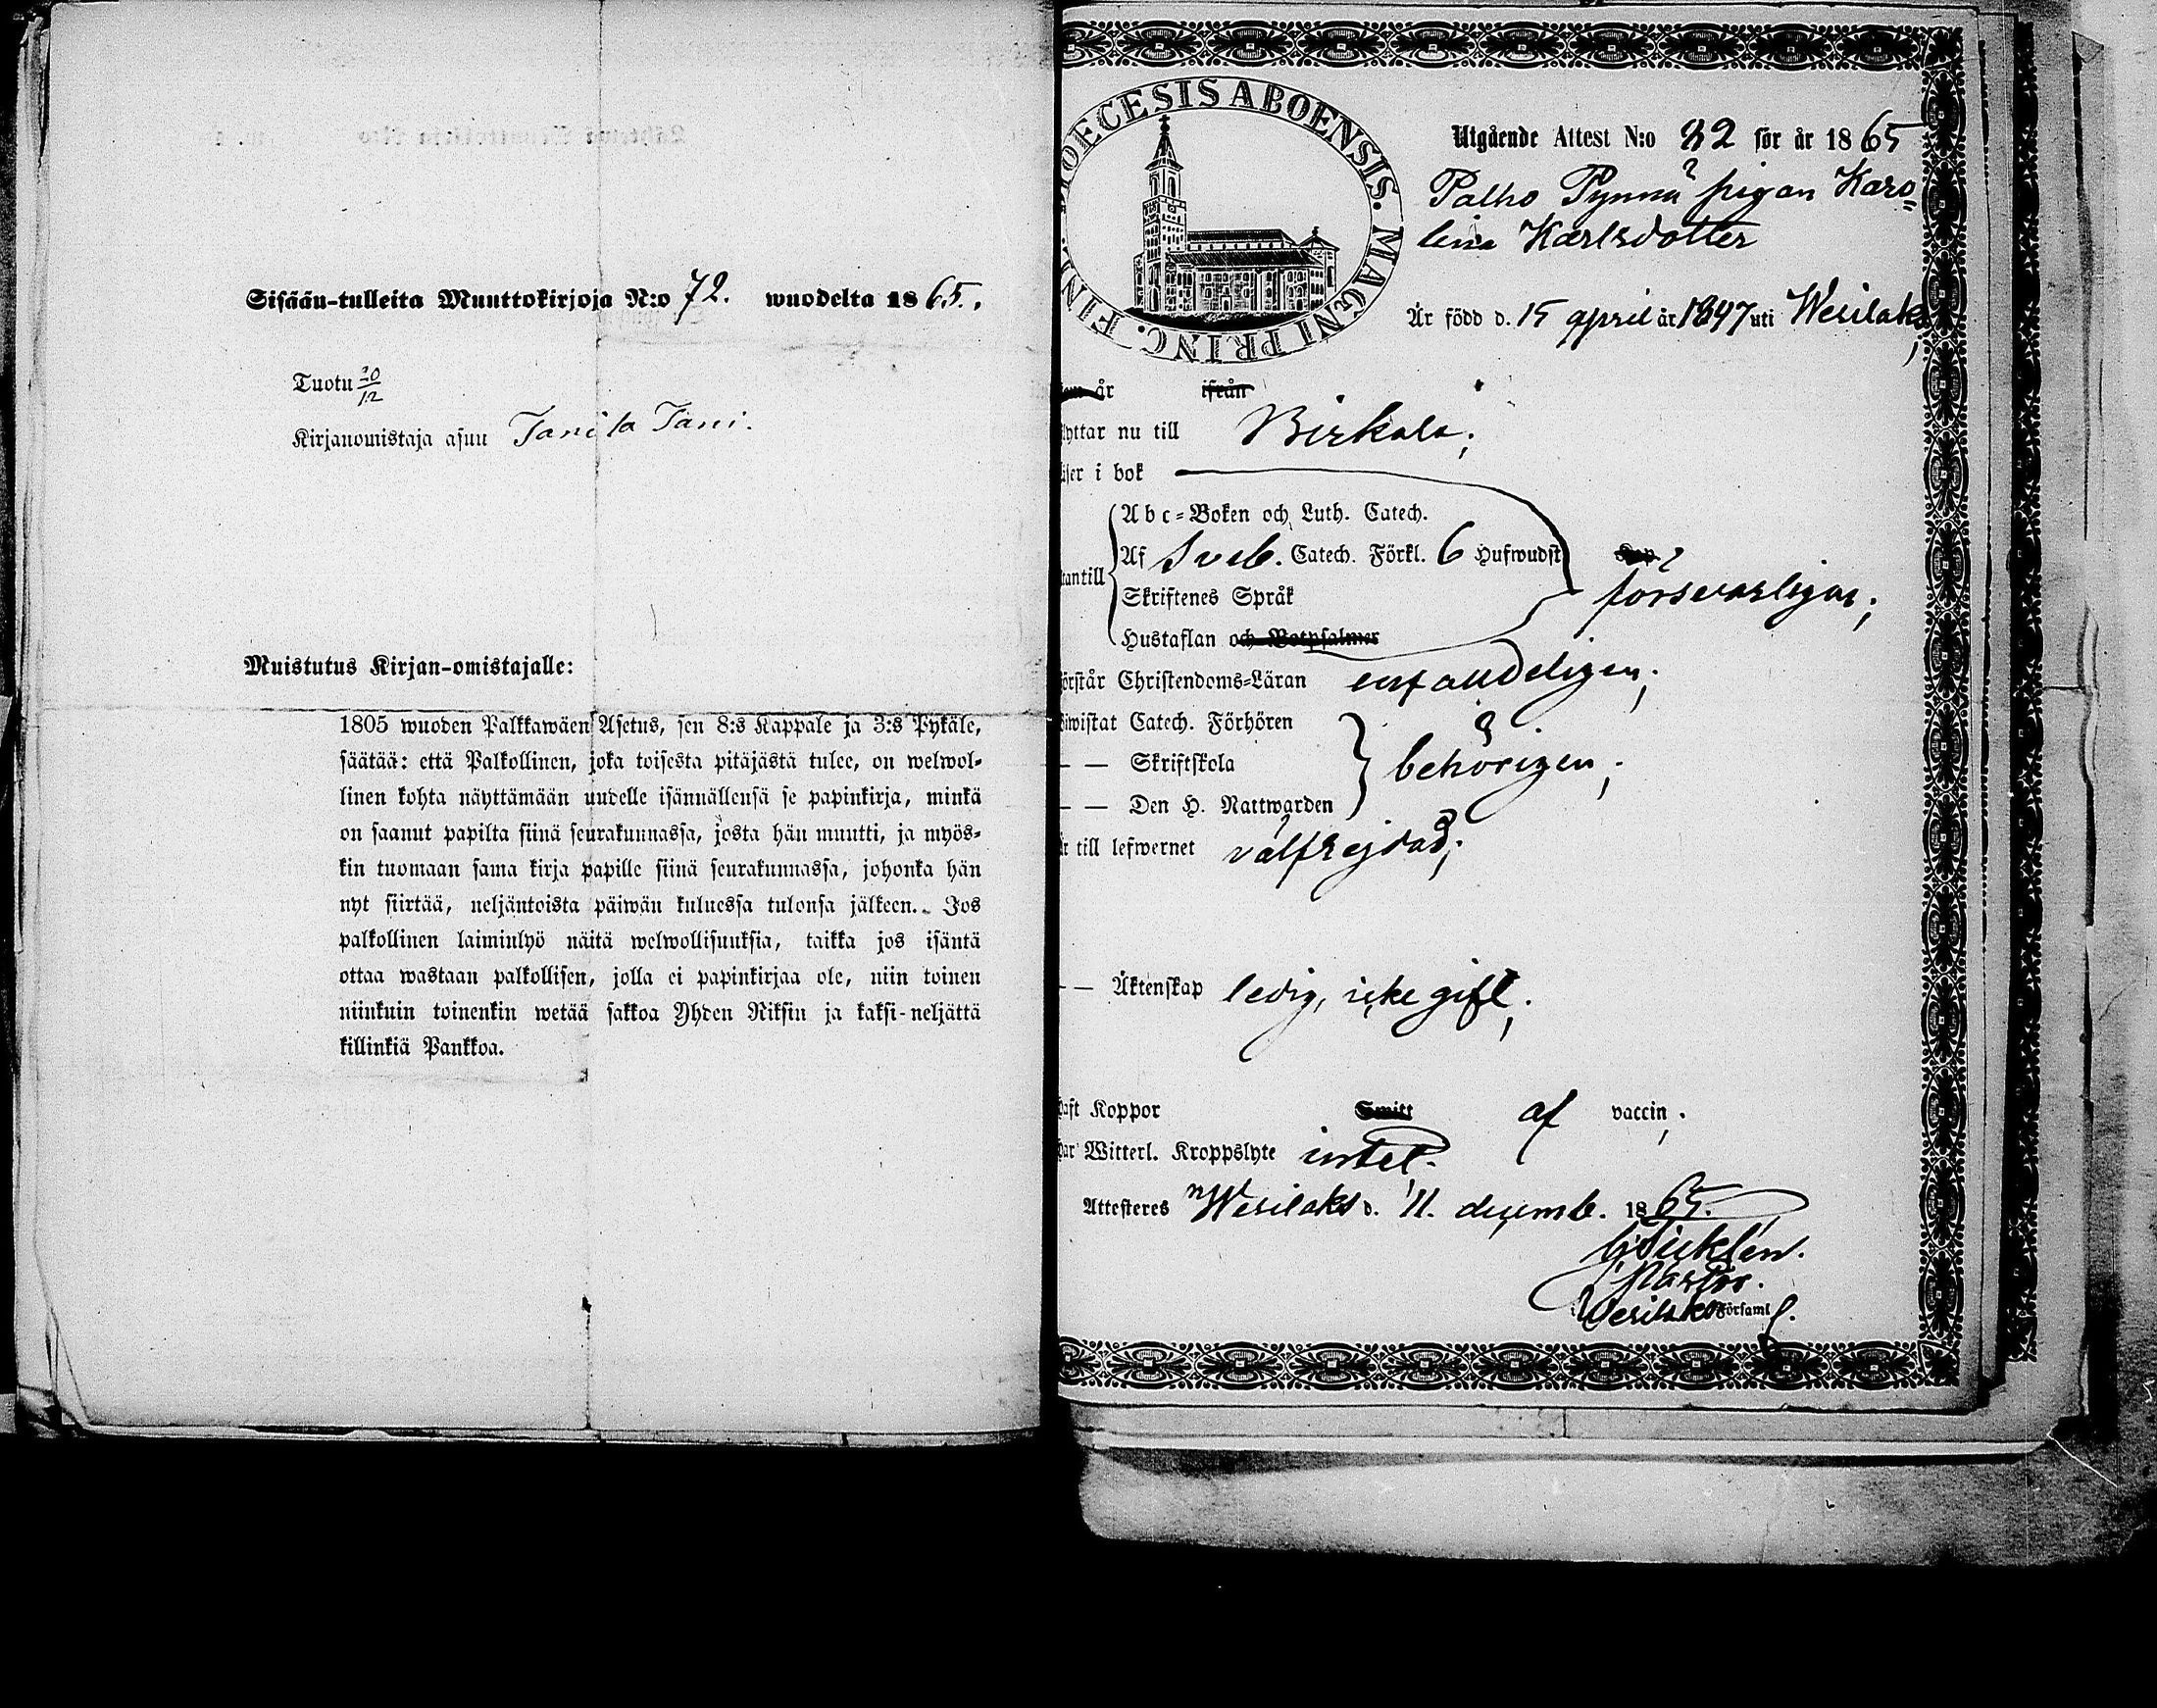 Sisään-tulleita Muuttokirjoja N:o 72. wuodelta 1865.,
Tuotu 20/12
Kirjanomistaja asuu Tanila Tani.
Muistutus Kirjan-omistajalle:
1805 wuoden Palkkawäen Asetus, sen 8:s Kappale ja 3:s Pykäle,
säätää: että Palkollinen, joka toisesta pitäjästä tulee, on welwol-
linen kohta näyttämään uudelle isännällensä se papinkirja, minkä
on saanut papilta siinä seurakunnassa, josta hän muutti, ja myös-
kin tuomaan sama kirja papille siinä seurakunnassa, johonka hän
nyt siirtää, neljäntoista päiwän kuluessa tulonsa jälkeen. Jos
palkollinen laiminlyö näitä welwollisuuksia, taikka jos isäntä
ottaa wastaan palkollisen, jolla ei papinkirjaa ole, niin toinen
niinkuin toinenkin wetää sakkoa Yhden Riksin ja kaksi-neljättä
killinkiä Pankkoa.
DIOECESIS ABOENSIS. MAGNI PRINC. FINL.
Utgående Attest N:o 82 för år 1865
Palho Pynnä pigan Karo=
lina Karlsdotter
Är född d. 15 april år 1847 uti Wesilaks,
år ifrån
lyttar nu till Birkala;
äser i bok
Abc-Boken och Luth. Catech.
Af Sveb. Catech. Förkl. 6 Hufwudst Kap.
försvarligen;
tantill
Skriftenes Språk
Hustaflan och Botpsalmer
örstår Christendoms-Läran enfaldeligen;
iwistat Catech. Förhören
— — Skriftskola behörigen;
— — Den H. Nattwarden
r till lefwernet välfrejdad;
— — Äktenskap ledig, icke gift;
aft Koppor Smitt af vaccin;
ar Witterl. Kroppslyte intet.
Attesteres Wesilaks d. 11. decemb. 1865.
Pastor.
i Vesilaks Församl.